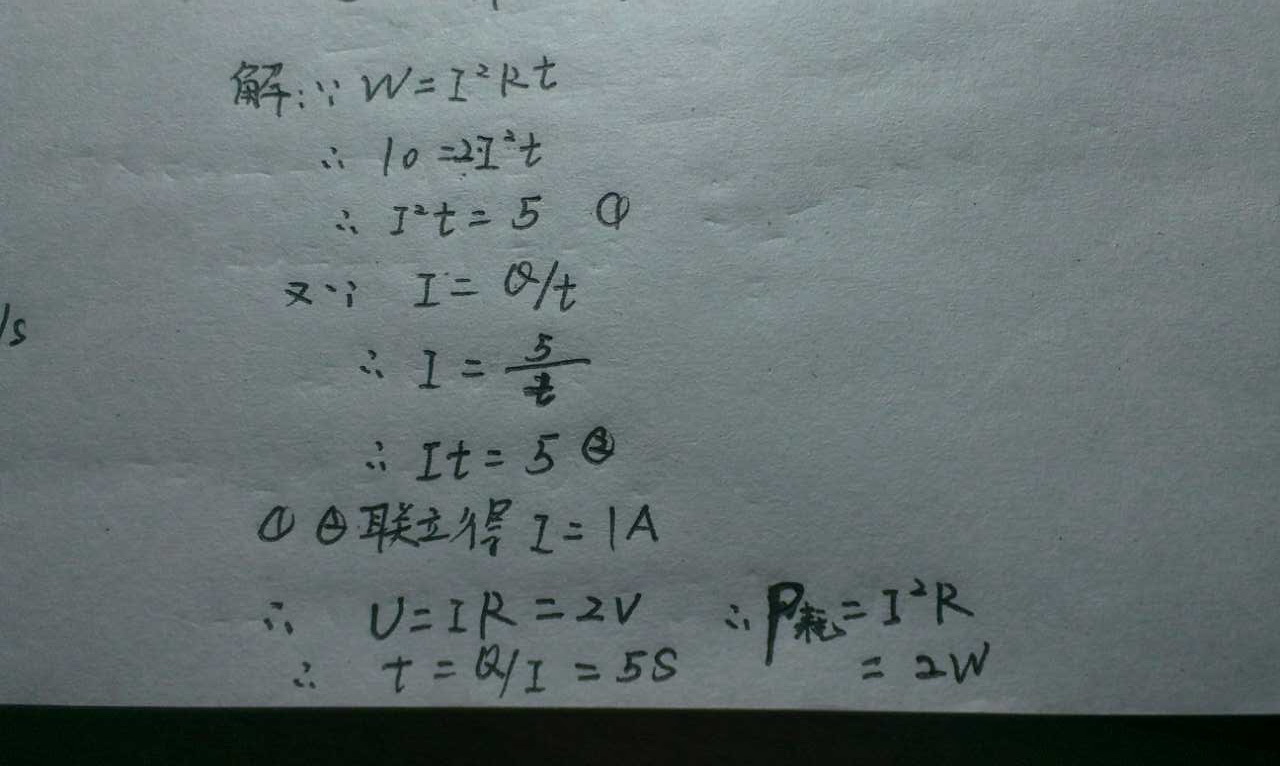 解：∵ W=I²Rt
∴ 10=2I²t
∴ I²t=5 ①
又∵ I=Q/t
/s
∴ I=5/t
∴ It=5 ②
①②联立得 I=1A
∴ U=IR=2V ∴P耗=I²R
∴ t=Q/I=5S =2W